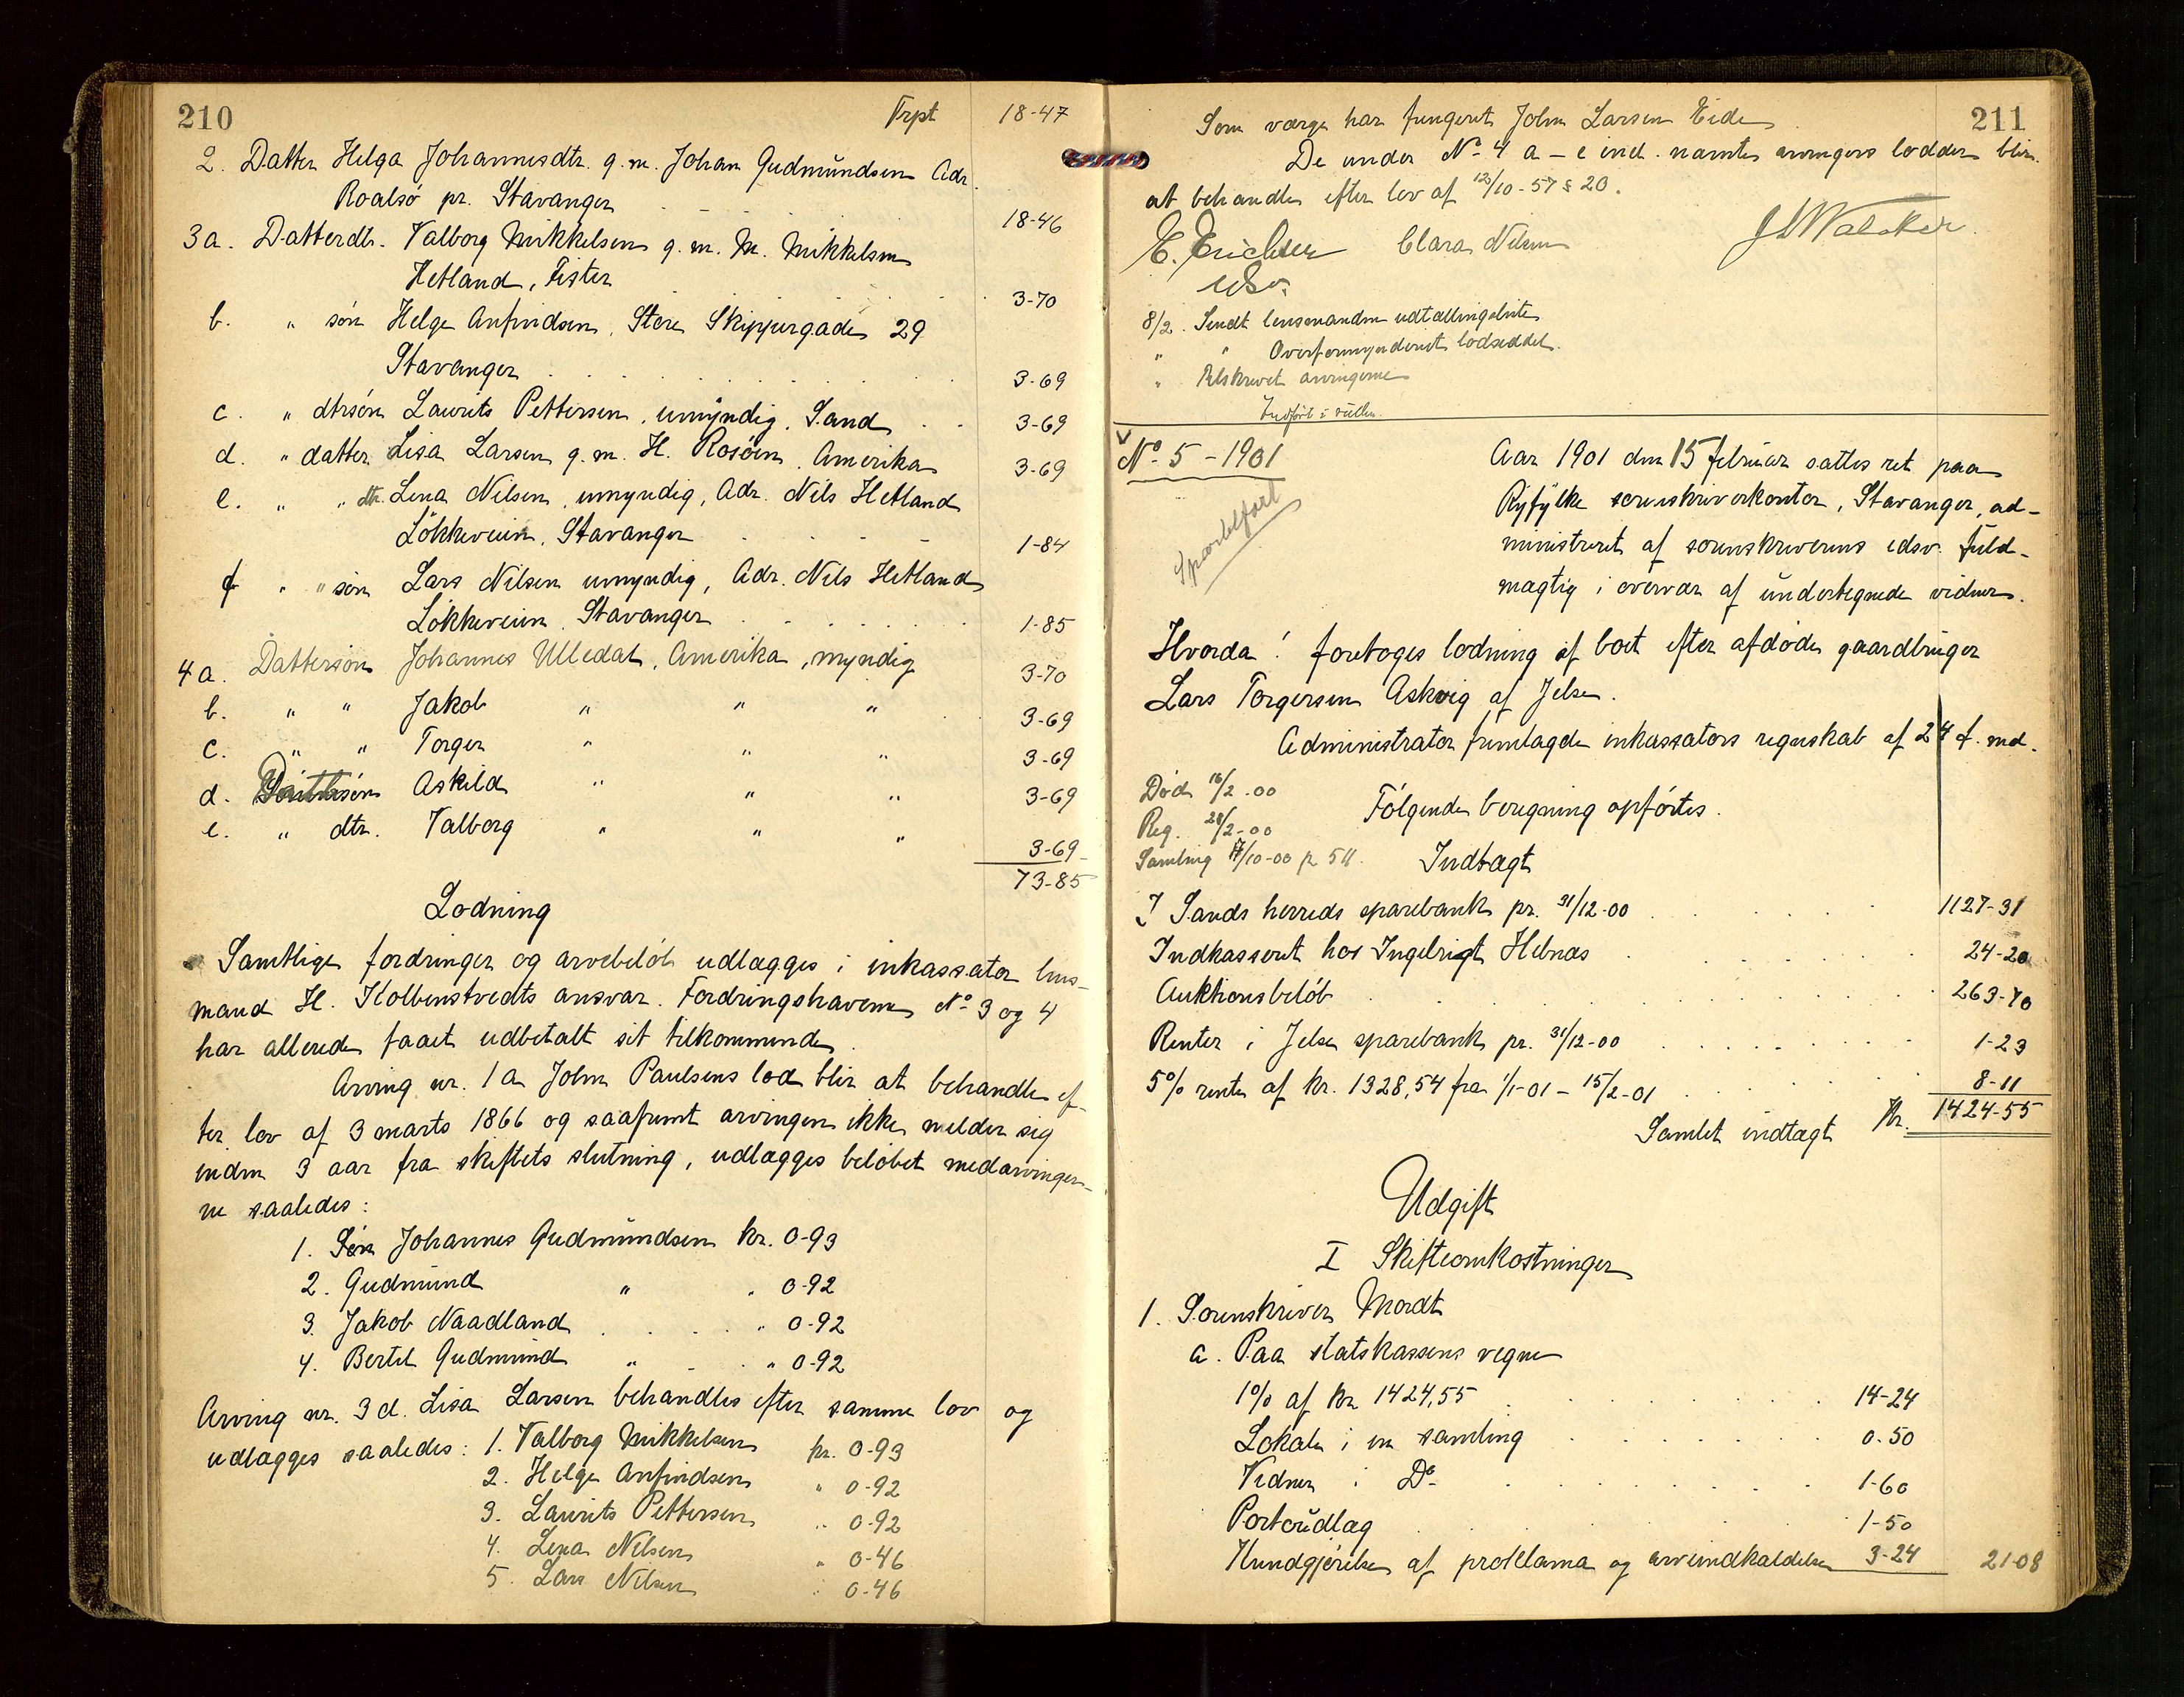 210
Trpt 18-47
2. Datter Helga Johannesdtr. g.m. Johan Gudmundsen Adr.
Roalsö pr. Stavanger 18-46
3a. Datterdtr. Valborg Mikkelsen g.m. M. Mikkelsen
Hetland, Fister 3-70
b. " sön Helge Anfindsen, Store Skippergade 29
Stavanger 3-69
c. " dtrsön Laurits Pettersen, umyndig, Sand 3-69
d. " datter Lisa Larsen g.m. H. Rosöen, Amerika 3-69
e. " " dtr. Lena Nilsen, umyndig, Adr. Nils Hetland
Lökkeveien, Stavanger 1-84
f " " sön Lars Nilsen umyndig, Adr. Nils Hetland
Lökkeveien, Stavanger 1-85
4a. Dattersön Johannes Ulledal, Amerika, myndig 3-70
b. " " Jakob " " " 3-69
c. " " Torger " " " 3-69
d. Dattersön Askild " " " 3-69
e. " dtr. Valborg " " " 3-69
73-85
Lodning
Samtlige fordringer og arvebelöb udlægges i inkassator lens-
mand H. Kolbenstvedts ansvar. Fordringshaverne No 3 og 4
har allerede faaet udbetalt sit tilkommende.
Arving nr. 1a John Paulsens lod blir at behandle ef-
ter lov af 3 marts 1866 og saafremt arvingen ikke melder sig
inden 3 aar fra skiftets slutning, udlægges belöbet medarvinger-
ne saaledes:
1. Sön Johannes Gudmundsen kr. 0-93
2. Gudmund " " 0-92
3. Jakob Naadland " 0-92
4. Bertel Gudmund " " 0-92
Arving nr. 3d. Lisa Larsen behandles efter samme lov og
udlægges saaledes: 1. Valborg Mikkelsen kr. 0-93
2. Helge Anfindsen " 0-92
3. Laurits Pettersen " 0-92
4. Lena Nilsen " 0-46
5. Lars Nilsen " 0-46
211
Som værge har fungeret John Larsen Eide
De under No 4 a - e incl. nævnte arvingers lodder blir
at behandle efter lov af 12/10-57 § 20.
E. Erichsen Clara Nilsen
8/2. Sendt lensmanden udtællingsliste
" " Overformynderiet lodseddel.
" Tilskrevet arvingerne
No 5 - 1901
Aar 1901 den 15 februar sattes ret paa
Ryfylke sorenskriverkontor, Stavanger, ad-
ministreret af sorenskriverens edsv. fuld-
mægtig i overvær af undertegnede vidner.
Hvorda! foretoges lodning af boet efter afdöde gaardbruger
Lars Torgersen Askvig af Jelse.
Administrator fremlagde inkassators regnskab af 24 f. md.
Död 16/2.00
Reg. 28/2-00
Samling 17/10-00 p 511.
Følgende beregning opförtes.
Indtægt
I Sands herreds sparebank pr. 31/12-00 1127-31
Indkasseret hos Ingebrigt Hebnæs 24-20
Auktionsbelöb 263-70
Renter i Jelse sparebank pr. 31/12-00 1-23
5% rente af kr. 1328,54 fra 1/1-01 - 15/2-01 8-11
Samlet indtægt Kr. 1424-55
Udgift
I Skifteomkostninger
1. Sorenskriver Mordt
a. Paa statskassens vegne
1% af kr 1424,55 14-24
Lokale i en samling 0-50
Vidner i Do 1-60
Portoudlæg 1-50
Kundgjörelse af proklama og arveindkaldelse 3-24 21-08